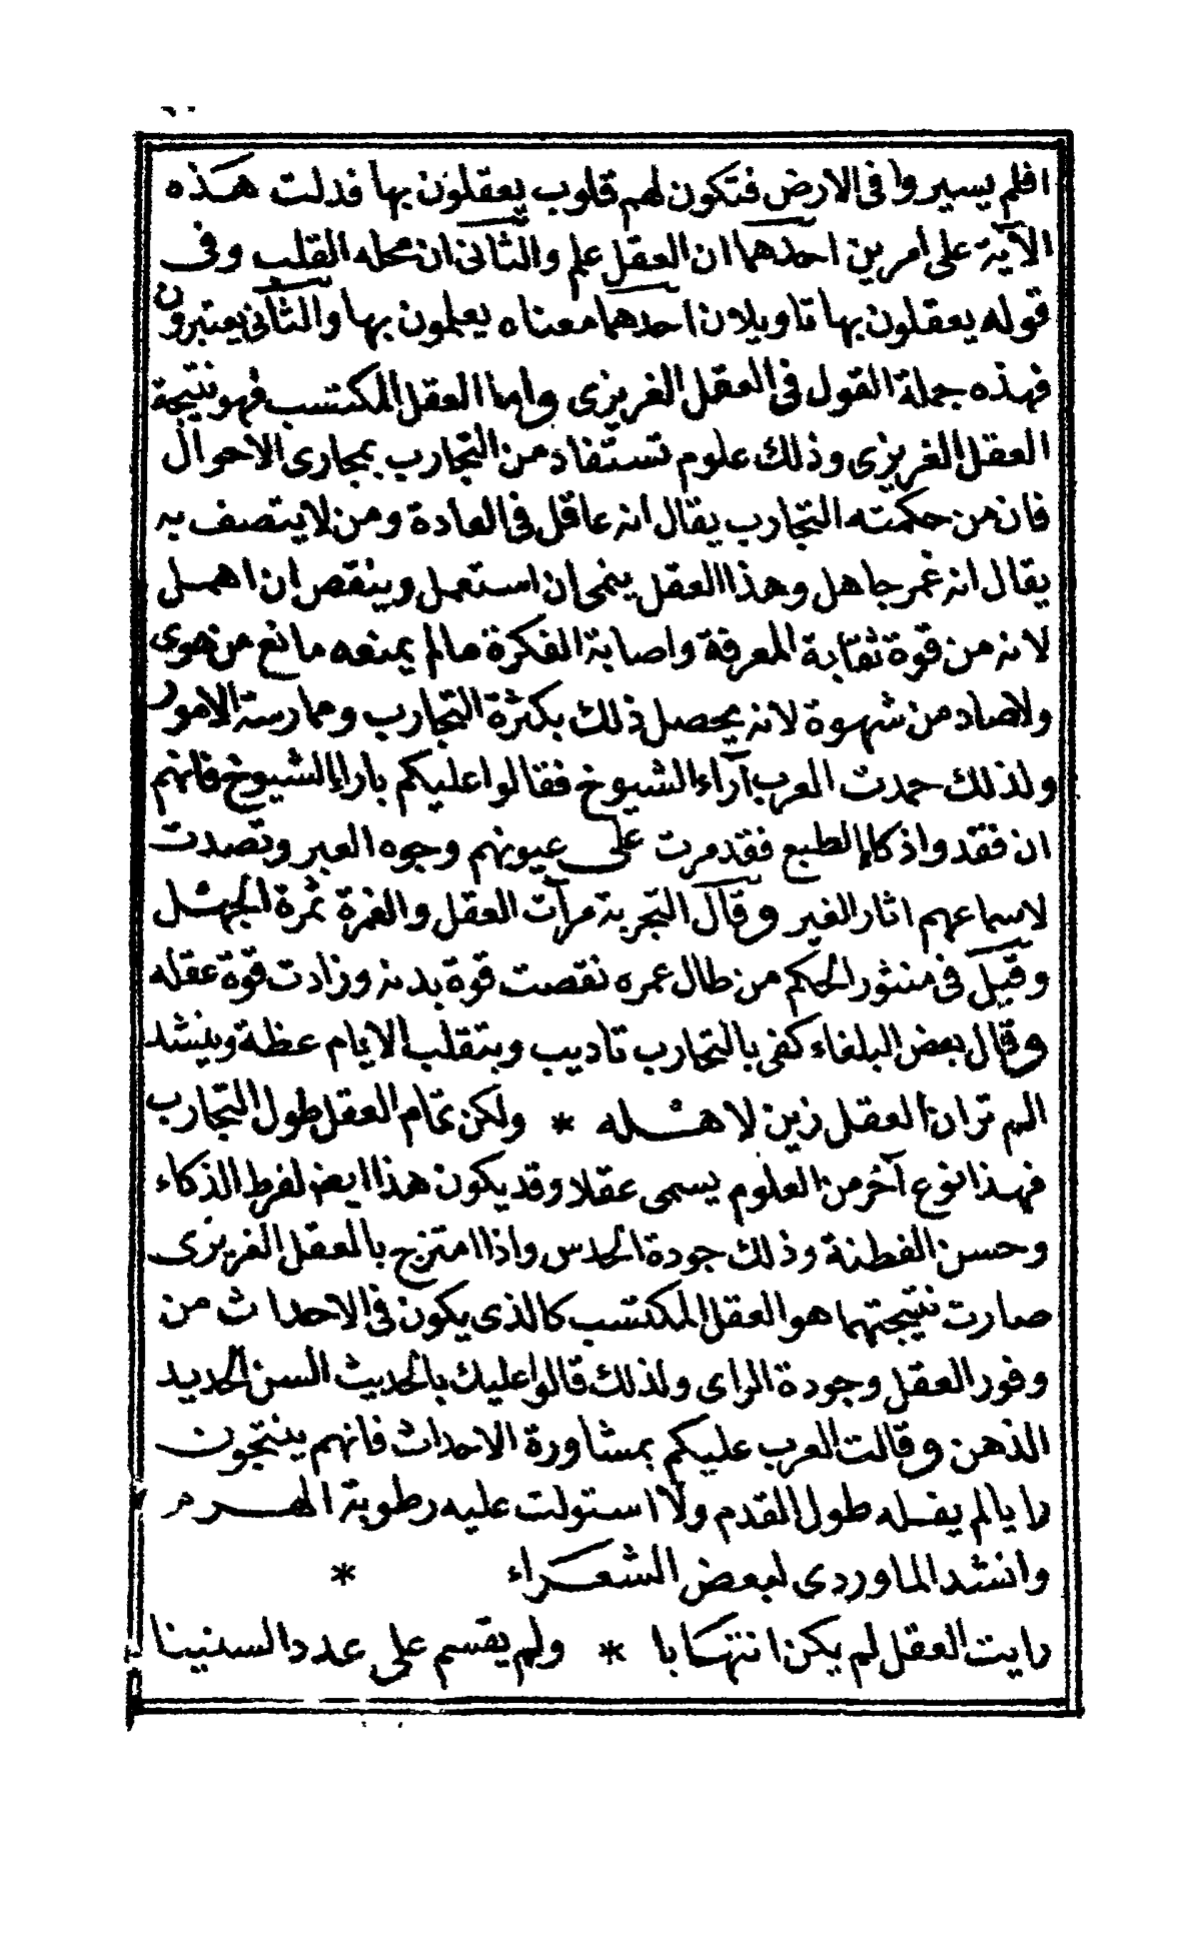 افلم يسيروا فى الارض فتكون لهم قلوب يعقلون بها فدلت هذه
الآية على امرين احدهما ان العقل علم والثانى ان محله القلب وفى
قوله يعقلون بها تاويلان احدهما معناه يعلمون بها والثانى يعتبرون
فهذه جملة القول فى العقل الغريزى واما العقل المكتسب فهو نتيجة
العقل الغريزى وذلك علوم تستفاد من التجارب بمجارى الاحوال
فان من حكمته التجارب يقال انه عاقل فى العادة ومن لا يتصف به
يقال انه غمر جاهل وهذا العقل ينمى ان استعمل وينقص ان اهمل
لانه من قوة ثقابة المعرفة واصابة الفكرة مالم يمنعه مانع من هوى
ولاصاد من شهوة لانه يحصل ذلك بكثرة التجارب وممارسة الامور
ولذلك حمدت العرب آراء الشيوخ فقالوا عليكم باراء الشيوخ فانهم
ان فقدوا ذكاء الطبع فقد مرت على عيونهم وجوه العبر وتصدت
لاسماعهم اثار الغير وقال التجربة مرآت العقل والغرة ثمرة الجهل
وقيل فى منثور الحكم من طال عمره نقصت قوة بدنه وزادت قوة عقله
وقال بعض البلغاء كفى بالتجارب تاديب وبتقلب الايام عظة وينشد
الم تر ان العقل زين لاهله * ولكن تمام العقل طول التجارب
فهذا نوع آخر من العلوم يسمى عقلا وقد يكون هذا ايض لفرط الذكاء
وحسن الفطنة وذلك جودة الحدس واذا امتزج بالعقل الغريزى
صارت نتيجتهما هو العقل المكتسب كالذى يكون فى الاحداث من
وفور العقل وجودة الراى ولذلك قالوا عليك بالحديث السن الحديد
الذهن وقالت العرب عليكم بمشاورة الاحداث فانهم ينتجون
رايا لم يفله طول القدم ولا استولت عليه رطوبة الهرم
وانشد الماوردى لبعض الشعراء *
رايت العقل لم يكن انتهابا * ولم يقسم على عدد السنينا